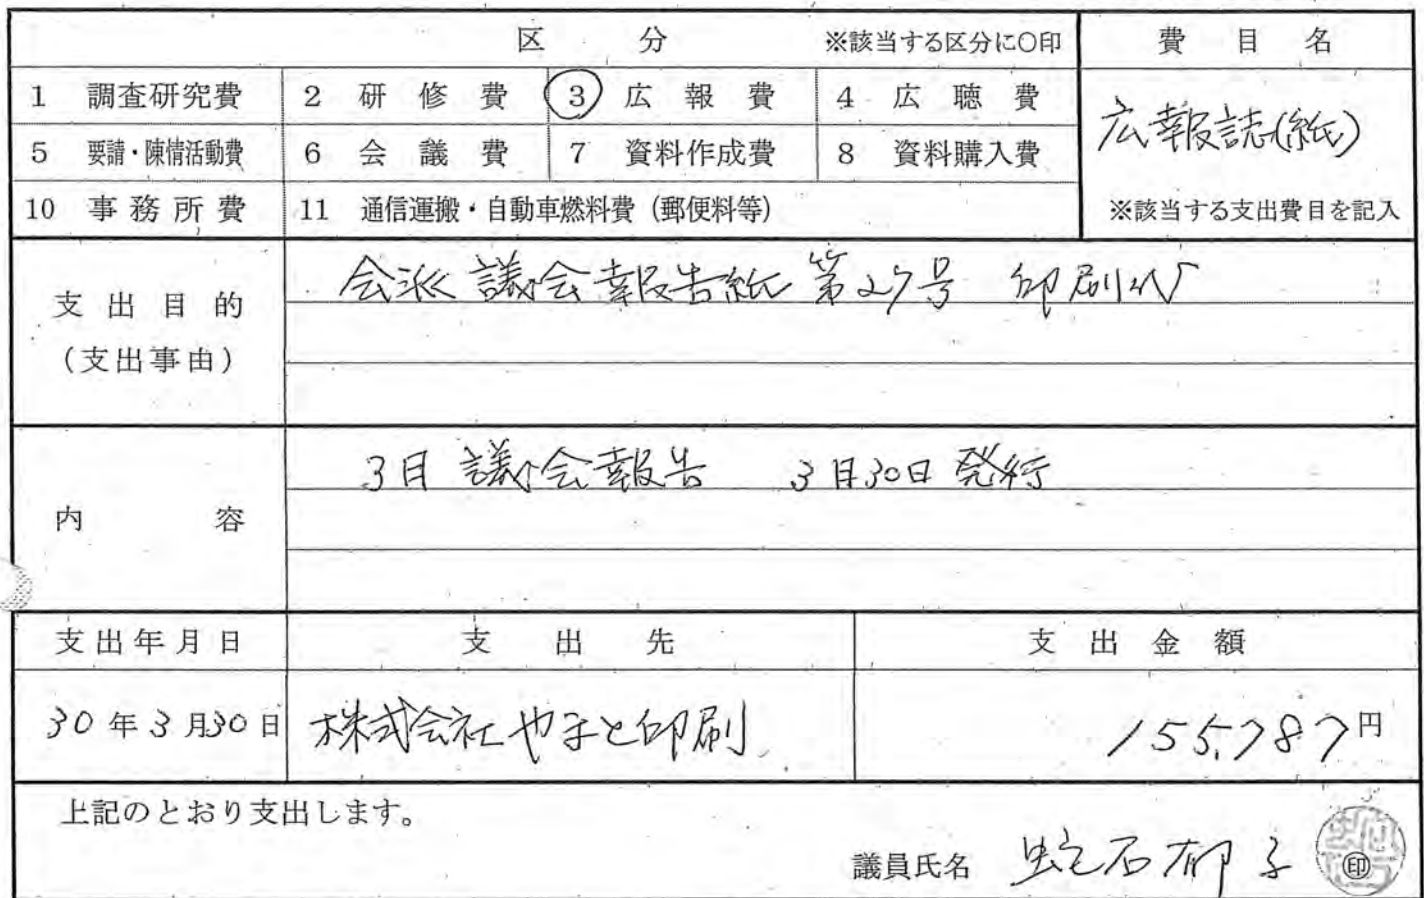 区 分 ※該当する区分に○印 費 目 名
1 調査研究費 2 研 修 費 ③ 広 報 費 4 広 聴 費
広報誌(紙)
5 要請・陳情活動費 6 会 議 費 7 資料作成費 8 資料購入費
10 事 務 所 費 11 通信運搬・自動車燃料費(郵便料等) ※該当する支出費目を記入
支 出 目 的
(支出事由)
会派 議会報告紙 第27号 印刷代
内 容
3月 議会報告 3月30日 発行
支出年月日 支 出 先 支 出 金 額
30年3月30日 株式会社 やまと印刷 155,787円
上記のとおり支出します。
議員氏名 蛇石郁子 印